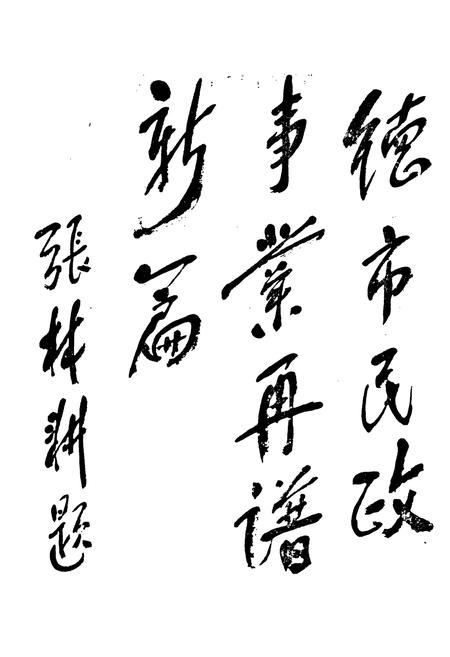 德市民政
事業再譜
新篇
張林耕题